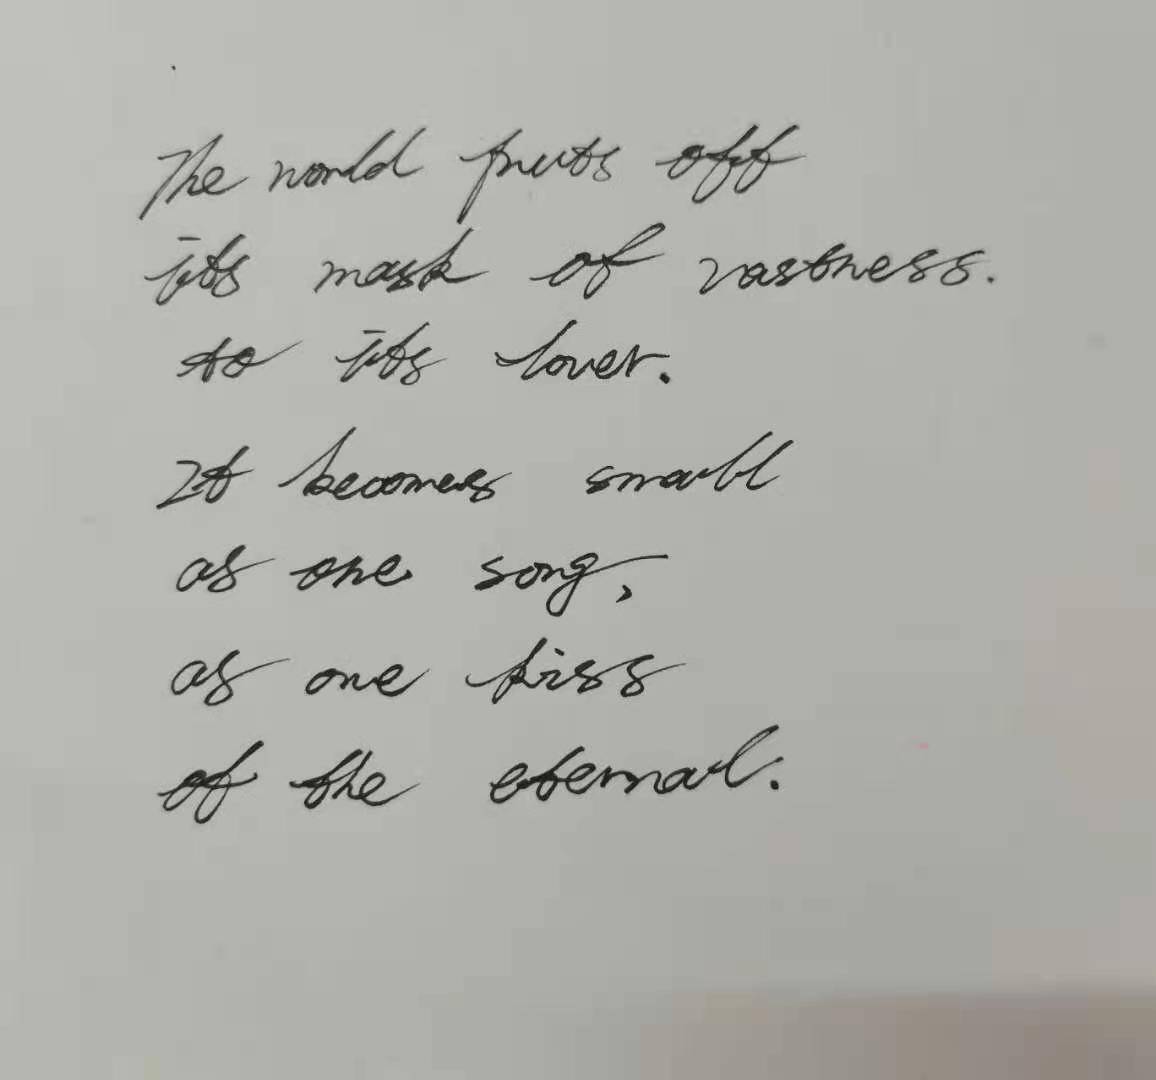 The world puts off
its mask of vastness.
to its lover.
It becomes small
as one song,
as one kiss
of the eternal.